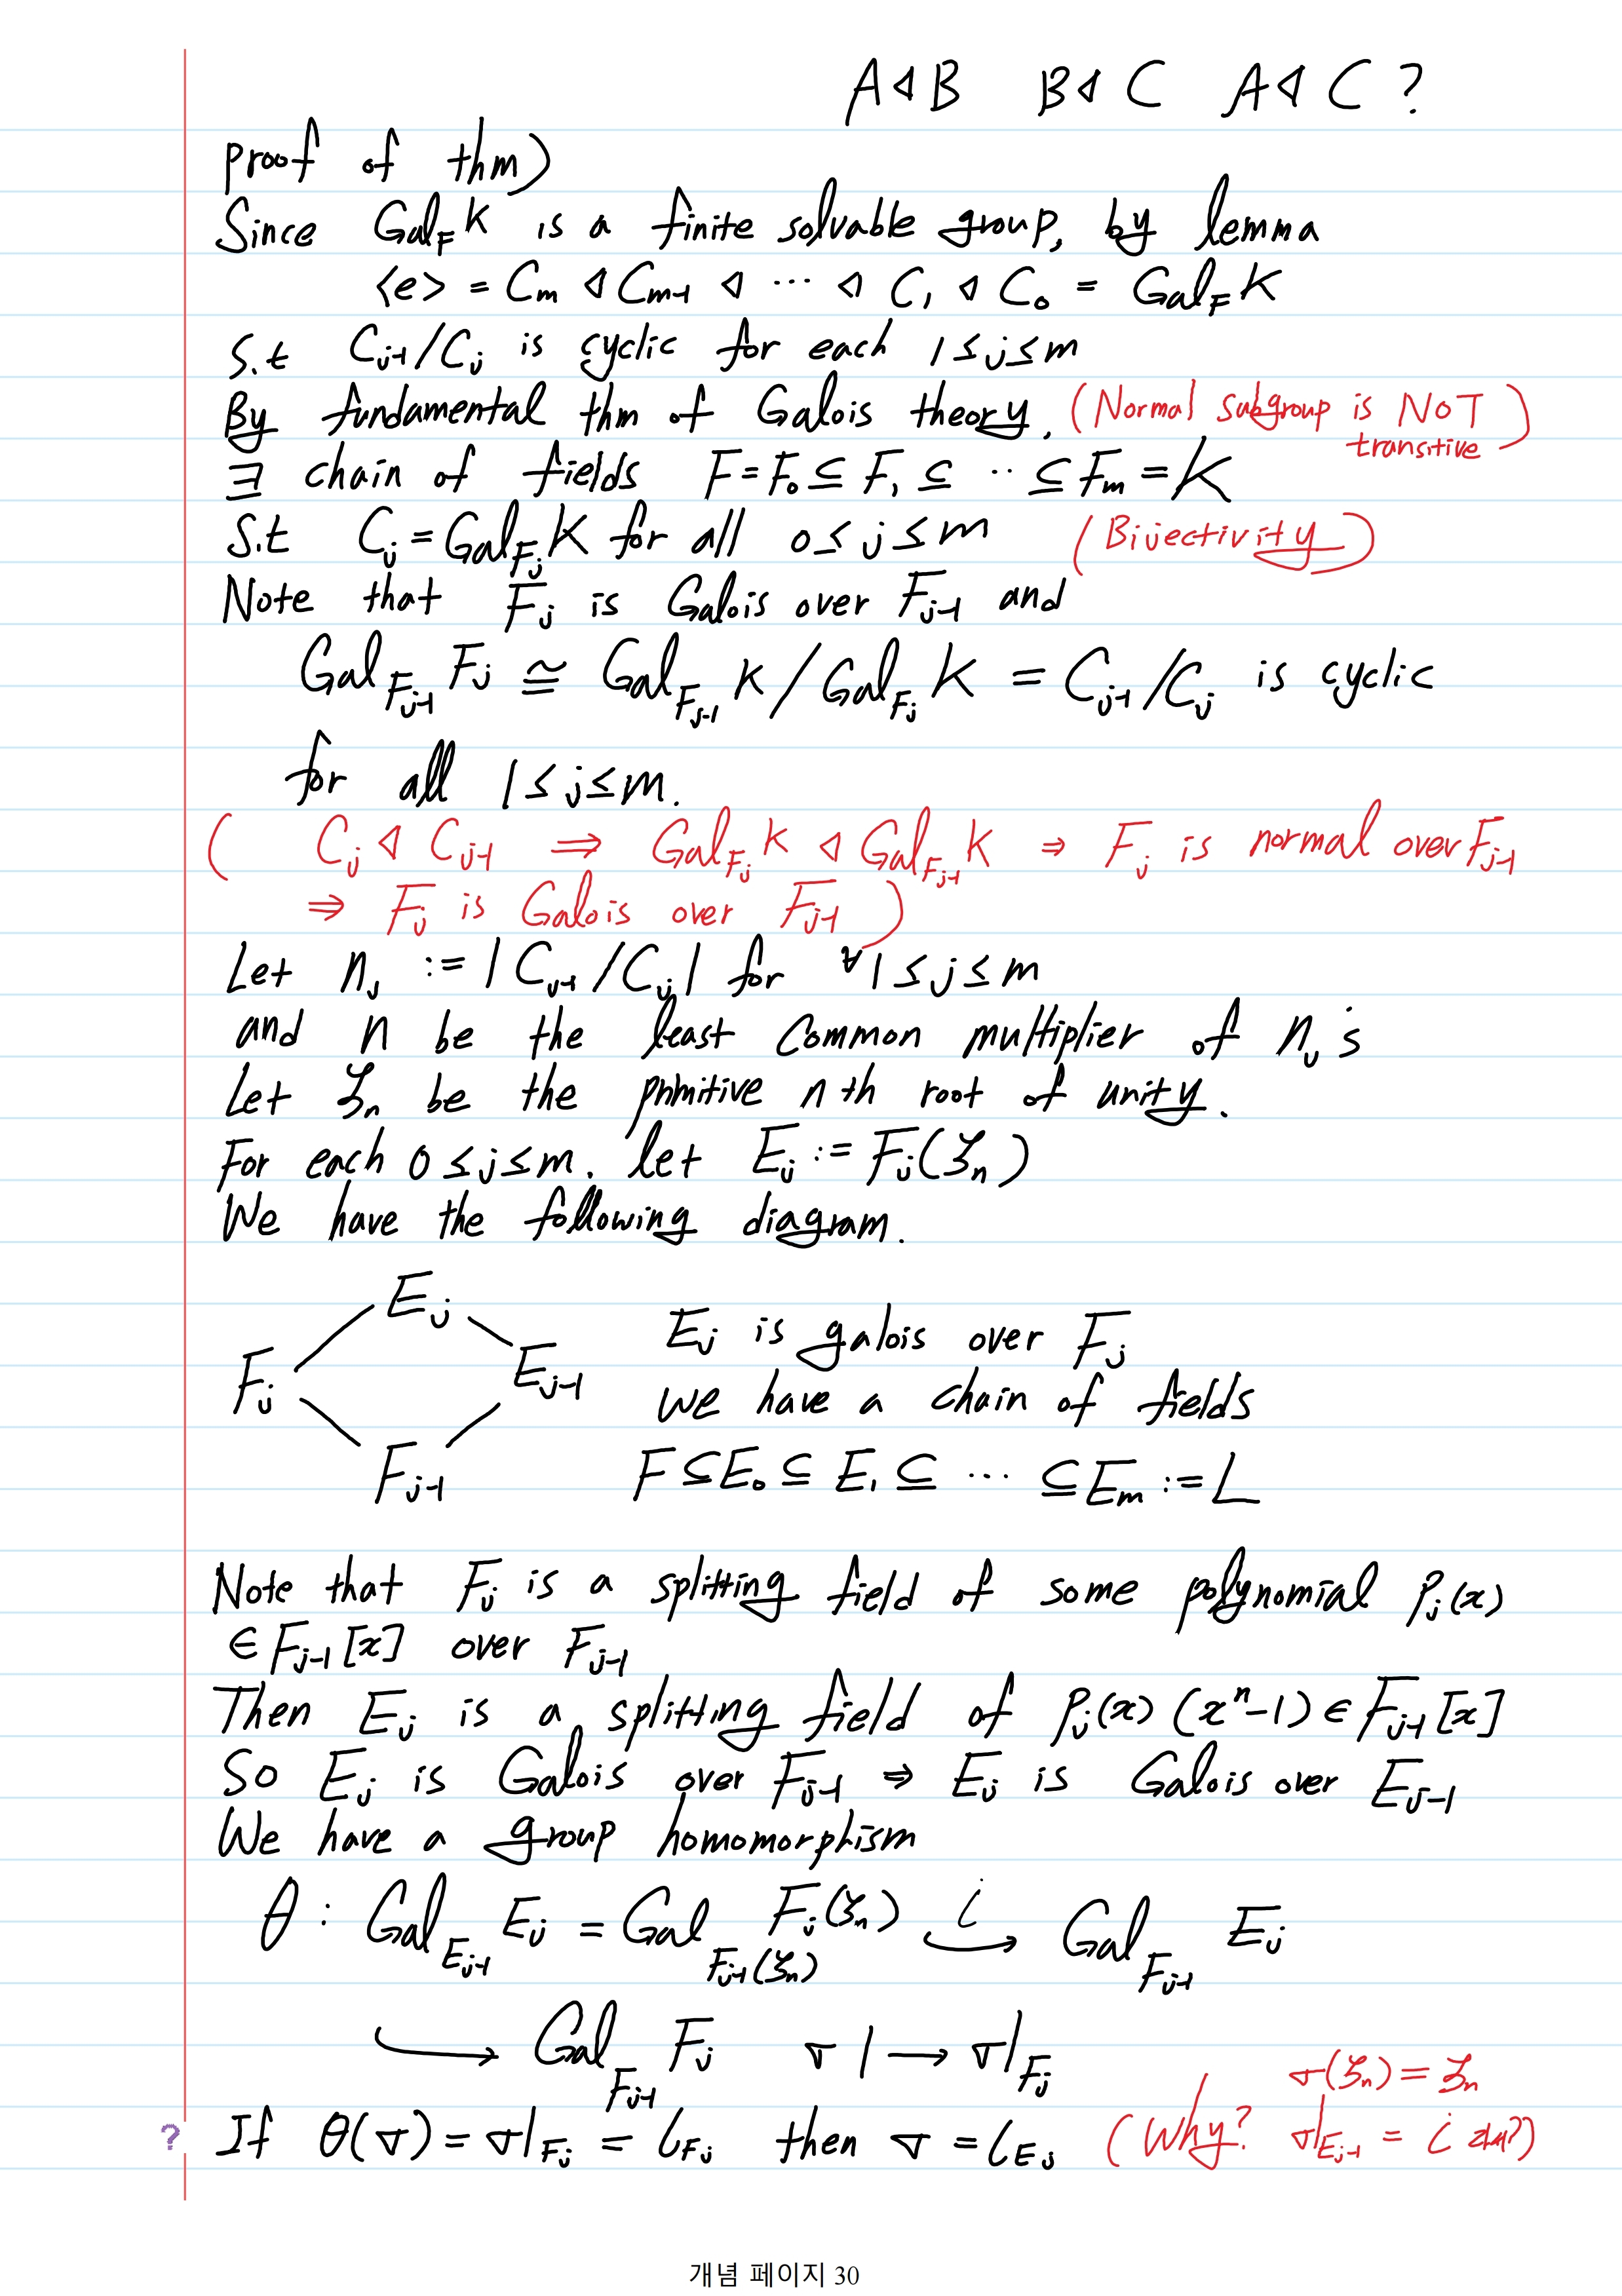 A ◁ B   B ◁ C   A ◁ C ?
proof of thm)
Since Gal_F K is a finite solvable group, by lemma
<e> = C_m ◁ C_{m-1} ◁ ⋯ ◁ C_1 ◁ C_0 = Gal_F K
S.t C_{j-1}/C_j is cyclic for each 1 ≤ j ≤ m
By fundamental thm of Galois theory, (Normal subgroup is NOT transitive)
∃ chain of fields F = F_0 ⊆ F_1 ⊆ ⋯ ⊆ F_m = K
S.t C_j = Gal_{F_j} K for all 0 ≤ j ≤ m (Bijectivity)
Note that F_j is Galois over F_{j-1} and
Gal_{F_{j-1}} F_j ≅ Gal_{F_{j-1}} K / Gal_{F_j} K = C_{j-1}/C_j is cyclic
for all 1 ≤ j ≤ m.
( C_j ◁ C_{j-1} ⇒ Gal_{F_j} K ◁ Gal_{F_{j-1}} K ⇒ F_j is normal over F_{j-1}
⇒ F_j is Galois over F_{j-1} )
Let n_j := |C_{j-1}/C_j| for ∀ 1 ≤ j ≤ m
and n be the least common multiplier of n_j's
Let ζ_n be the primitive nth root of unity.
For each 0 ≤ j ≤ m. let E_j := F_j(ζ_n)
We have the following diagram.
E_j
F_j   E_{j-1}
F_{j-1}
E_j is galois over F_j
we have a chain of fields
F ⊆ E_0 ⊆ E_1 ⊆ ⋯ ⊆ E_m := L
Note that F_j is a splitting field of some polynomial p_j(x)
∈ F_{j-1}[x] over F_{j-1}
Then E_j is a splitting field of p_j(x)(x^n-1) ∈ F_{j-1}[x]
So E_j is Galois over F_{j-1} ⇒ E_j is Galois over E_{j-1}
We have a group homomorphism
θ : Gal_{E_{j-1}} E_j = Gal_{F_{j-1}(ζ_n)} F_j(ζ_n) ↪^i Gal_{F_{j-1}} E_j
↪ Gal_{F_{j-1}} F_j   σ ↦ σ|_{F_j}
σ(ζ_n) = ζ_n
? If θ(σ) = σ|_{F_j} = ι_{F_j} then σ = ι_{E_j} (Why? σ|_{E_{j-1}} = i
개념 페이지 30